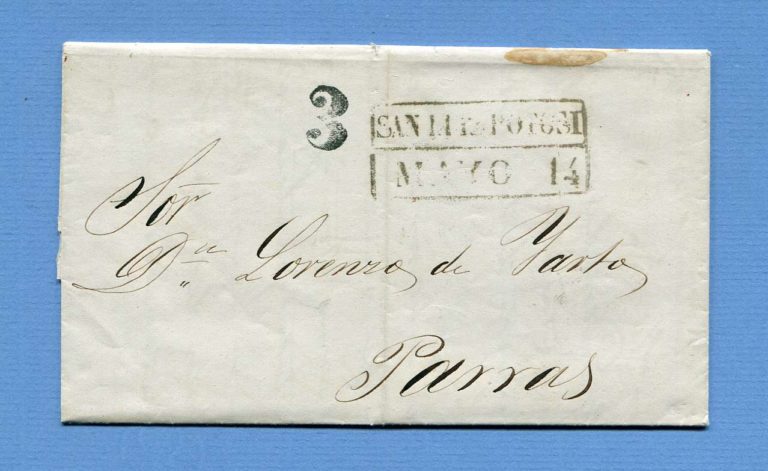 3
SAN LUIS POTOSI
MAYO 14
Sor
Dn Lorenzo de Yarto
Parras